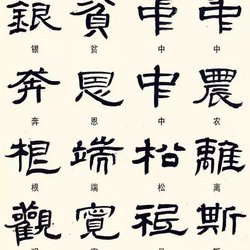 銀 貧 中 中
银 贫 中 中
奔 恩 中 農
奔 恩 中 农
根 端 松 離
根 端 松 离
觀 寬 斯